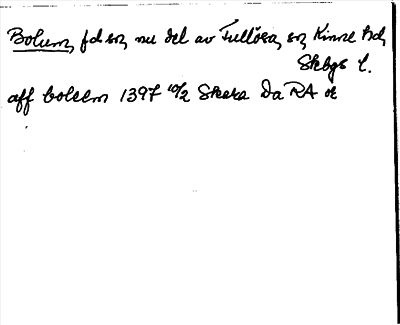 Bolum, fd sn, nu del av Fullösa sn, Kinne hd,
Skbgs l.
aff bolem 1397 10/2 Skara Da RA or